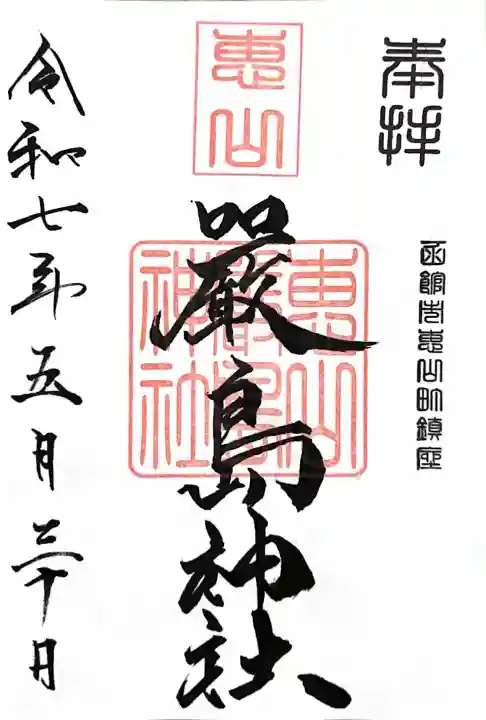 奉拝
函館市恵山町鎮座
恵山
厳島神社
恵山
厳島
神社
令和七年五月三十日